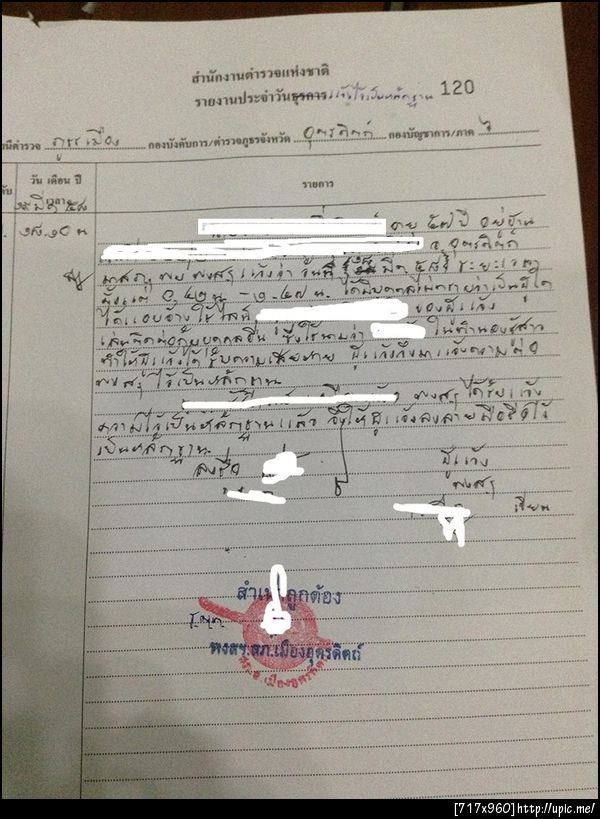 สำนักงานตำรวจแห่งชาติ
รายงานประจำวันธุรการแจ้งไว้เป็นหลักฐาน 120
นีตำรวจ ภูธรเมือง กองบังคับการ/ตำรวจภูธรจังหวัด อุตรดิตถ์ กองบัญชาการ/ภาค ๖
ดับ วัน เดือน ปี เวลา รายการ
๑๕.๑๐ น อายุ ๕๗ ปี อยู่บ้าน
จ.อุตรดิตถ์
มาพบ พงส แจ้งว่า วันที่ ๕๘ ระยะเวลา
ตั้งแต่ ๐.๔๒ น - ๑.๔๗ น. ได้มีบุคคลไม่ทราบว่าเป็นผู้ใด
ได้แอบอ้างใช้ไลน์ ของผู้แจ้ง
เล่นติดต่อกับบุคคลอื่น ซึ่งใช้นามว่า ในทำนองชู้สาว
ทำให้ผู้แจ้งได้รับความเสียหาย ผู้แจ้งจึงมาแจ้งความต่อ
พงส ไว้เป็นหลักฐาน
พงส ได้รับแจ้ง
ความไว้เป็นหลักฐานแล้ว จึงให้ผู้แจ้งลงลายมือชื่อไว้
เป็นหลักฐาน
ลงชื่อ ผู้แจ้ง
พงส
เขียน
สำเนาถูกต้อง
พงสฯ.สภ.เมืองอุตรดิตถ์
[717x960]http://upic.me/